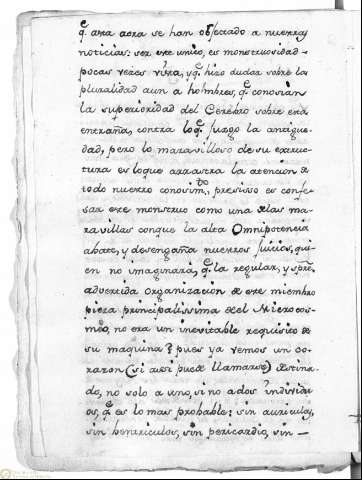 q.e asta aora se han obserbado a nuestras
noticias: ser este unico, es monstruosidad
pocas vezes vista, y q.e hizo dudar sobre la
pluralidad aun a hombres, q.e conosian
la superioridad del Cerebro sobre esta
entraña, contra lo q.e juzgo la antigue-
dad, pero lo maravilloso de su extruc-
tura es loque arrastra la atencion de
todo nuestro conosim.to, presisso es confe-
sar este monstruo como una de las ma-
ravillas conque la alta Omnipotencia
abate, y desengaña nuestros juicios, qui-
en no imaginará, q.e la regular, y spre.
advertida organizacion de este miembro
pieza principalissima del Microcos-
mos, no era un inevitable requisito de
su maquina? pues ya vemos un co-
razon (si assi puede llamarse) destina-
do, no solo a uno, si no a dos individu-
os, q.e es lo mas probable: sin auriculas,
sin bentriculos, sin pericardio, sin —